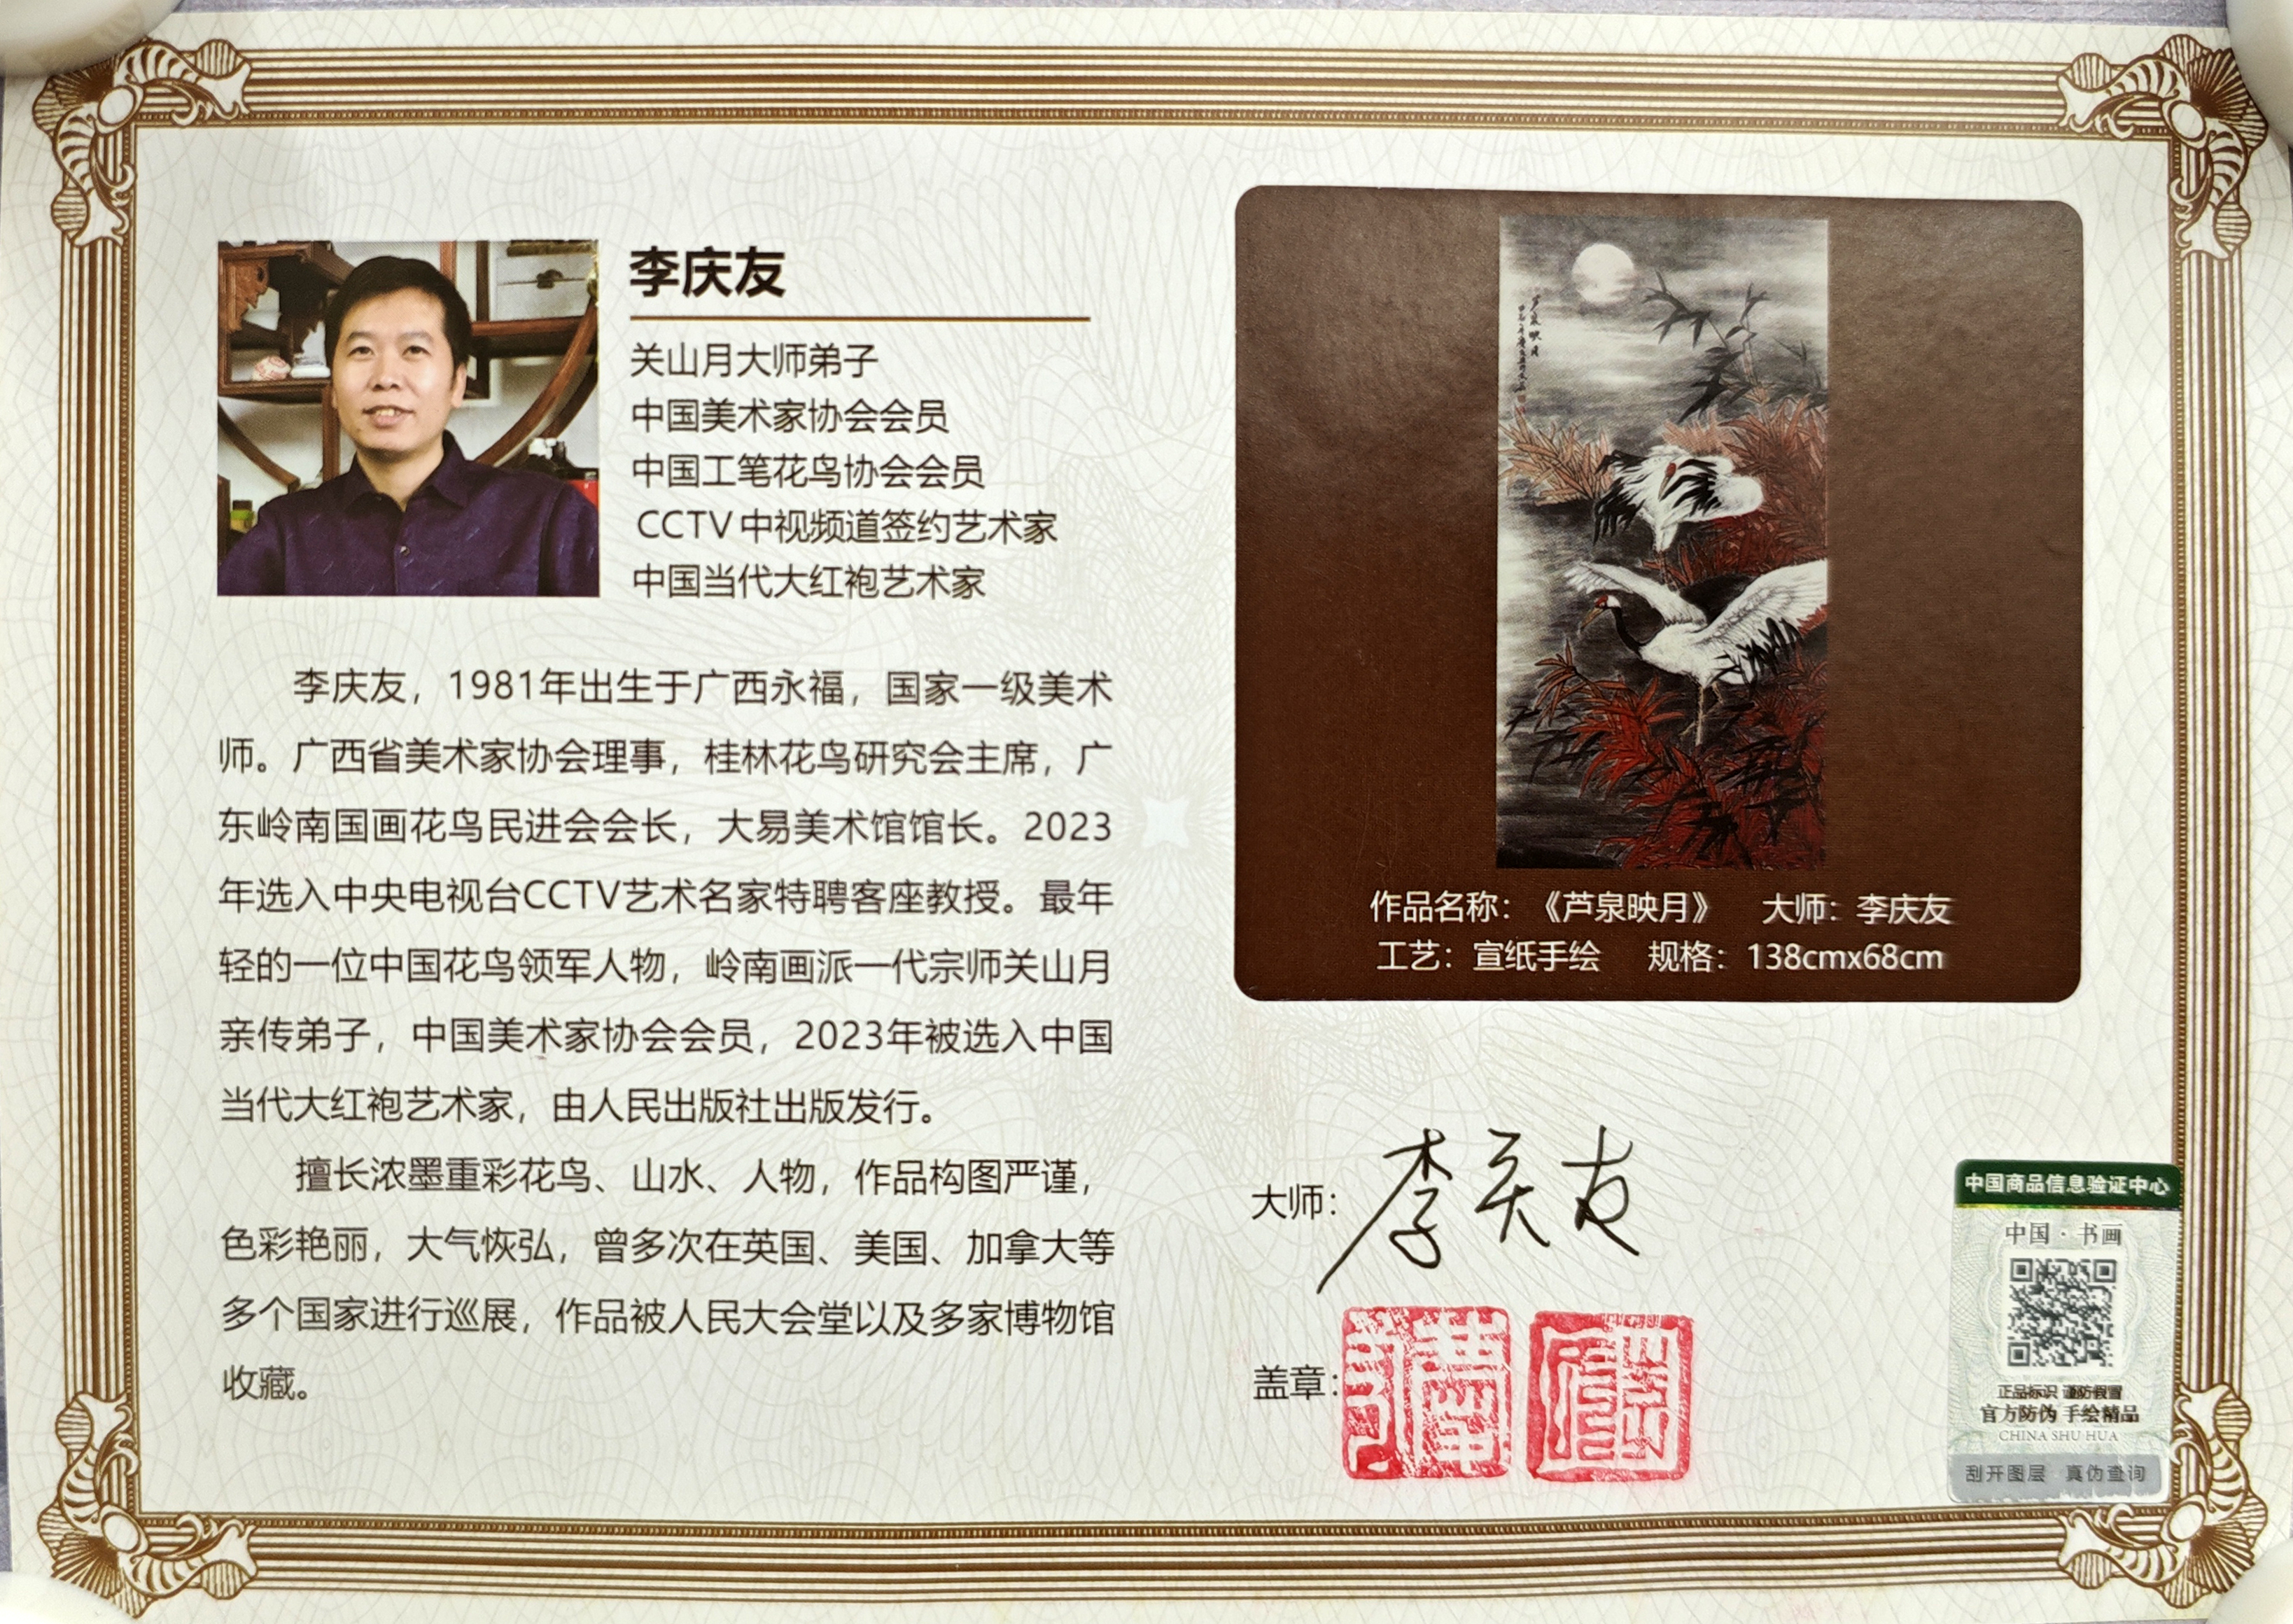 李庆友
关山月大师弟子
中国美术家协会会员
中国工笔花鸟协会会员
CCTV中视频道签约艺术家
中国当代大红袍艺术家
李庆友，1981年出生于广西永福，国家一级美术
师。广西省美术家协会理事，桂林花鸟研究会主席，广
东岭南国画花鸟民进会会长，大易美术馆馆长。2023
年选入中央电视台CCTV艺术名家特聘客座教授。最年
轻的一位中国花鸟领军人物，岭南画派一代宗师关山月
亲传弟子，中国美术家协会会员，2023年被选入中国
当代大红袍艺术家，由人民出版社出版发行。
擅长浓墨重彩花鸟、山水、人物，作品构图严谨，
色彩艳丽，大气恢弘，曾多次在英国、美国、加拿大等
多个国家进行巡展，作品被人民大会堂以及多家博物馆
收藏。
芦泉映月
作品名称：《芦泉映月》 大师：李庆友
工艺：宣纸手绘 规格：138cmx68cm
大师：李庆友
盖章：
中国商品信息验证中心
中国·书画
正品标识 谨防假冒
官方防伪 手绘精品
CHINA SHU HUA
刮开图层 真伪查询